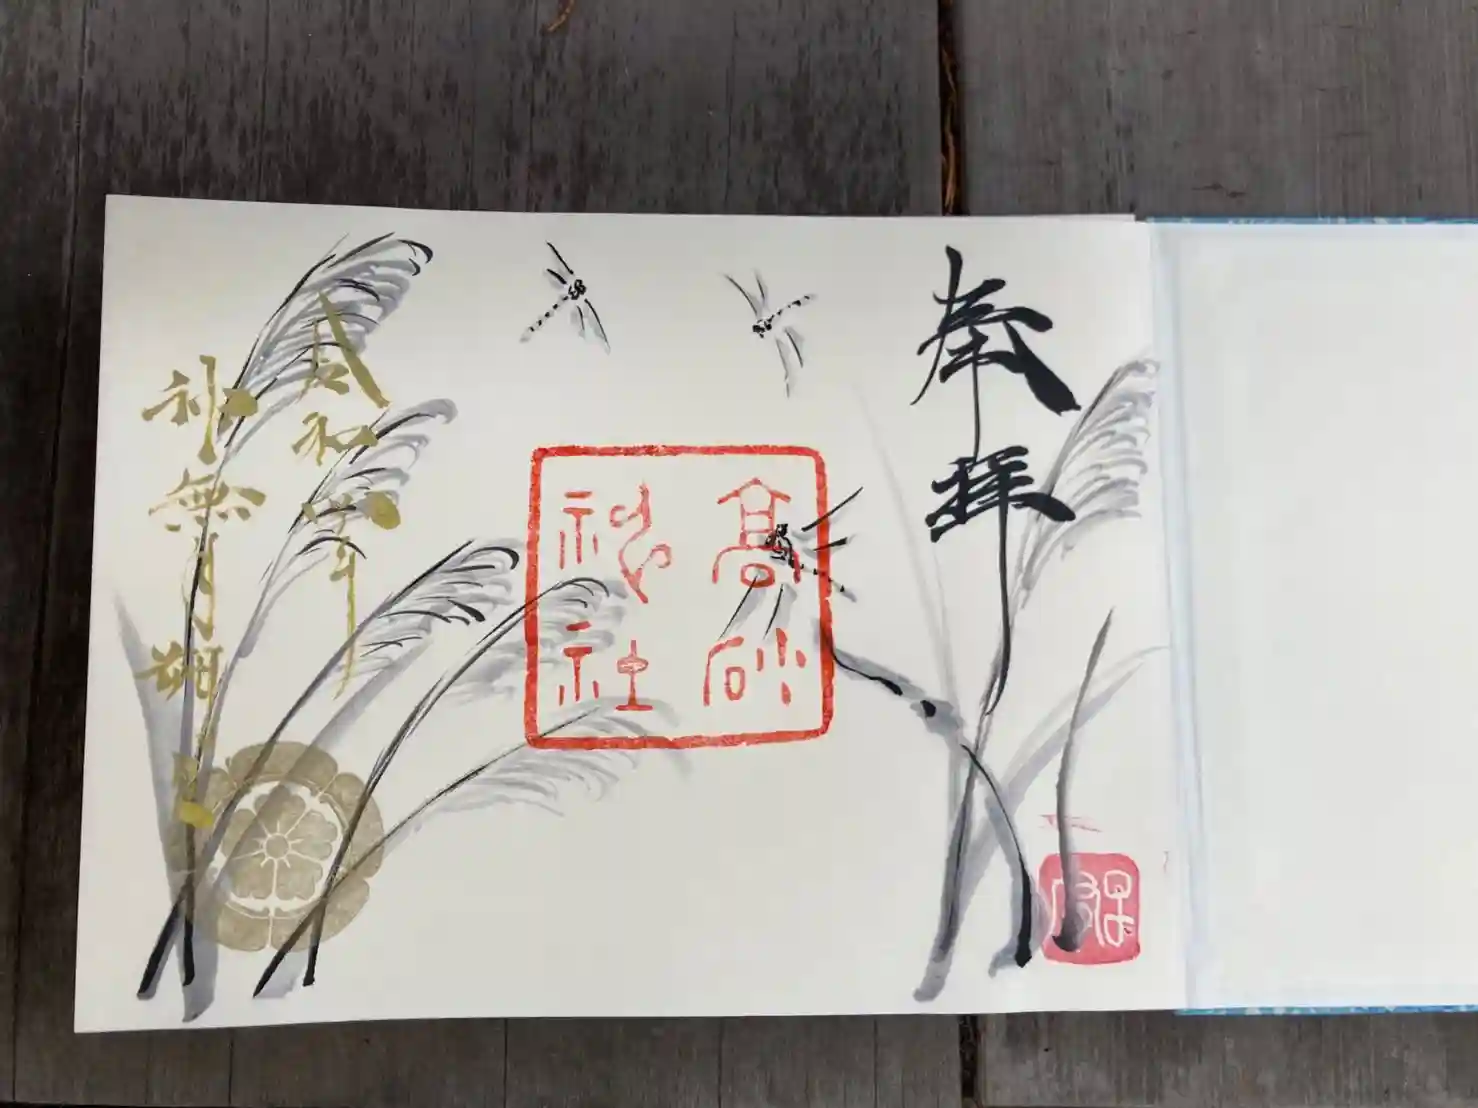 奉拝
高砂
神社
令和 年
神無月朔日